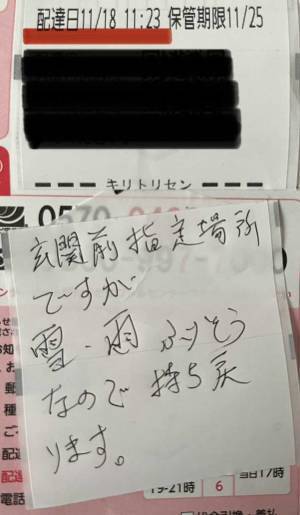 配達日11/18 11:23 保管期限11/25
キリトリセン
0570
玄関前指定場所
ですが
雪・雨 ふりそう
なので 持ち戻
ります。
お知
郵
種
ご
配
配達
電話
19-21時 6 当日17時